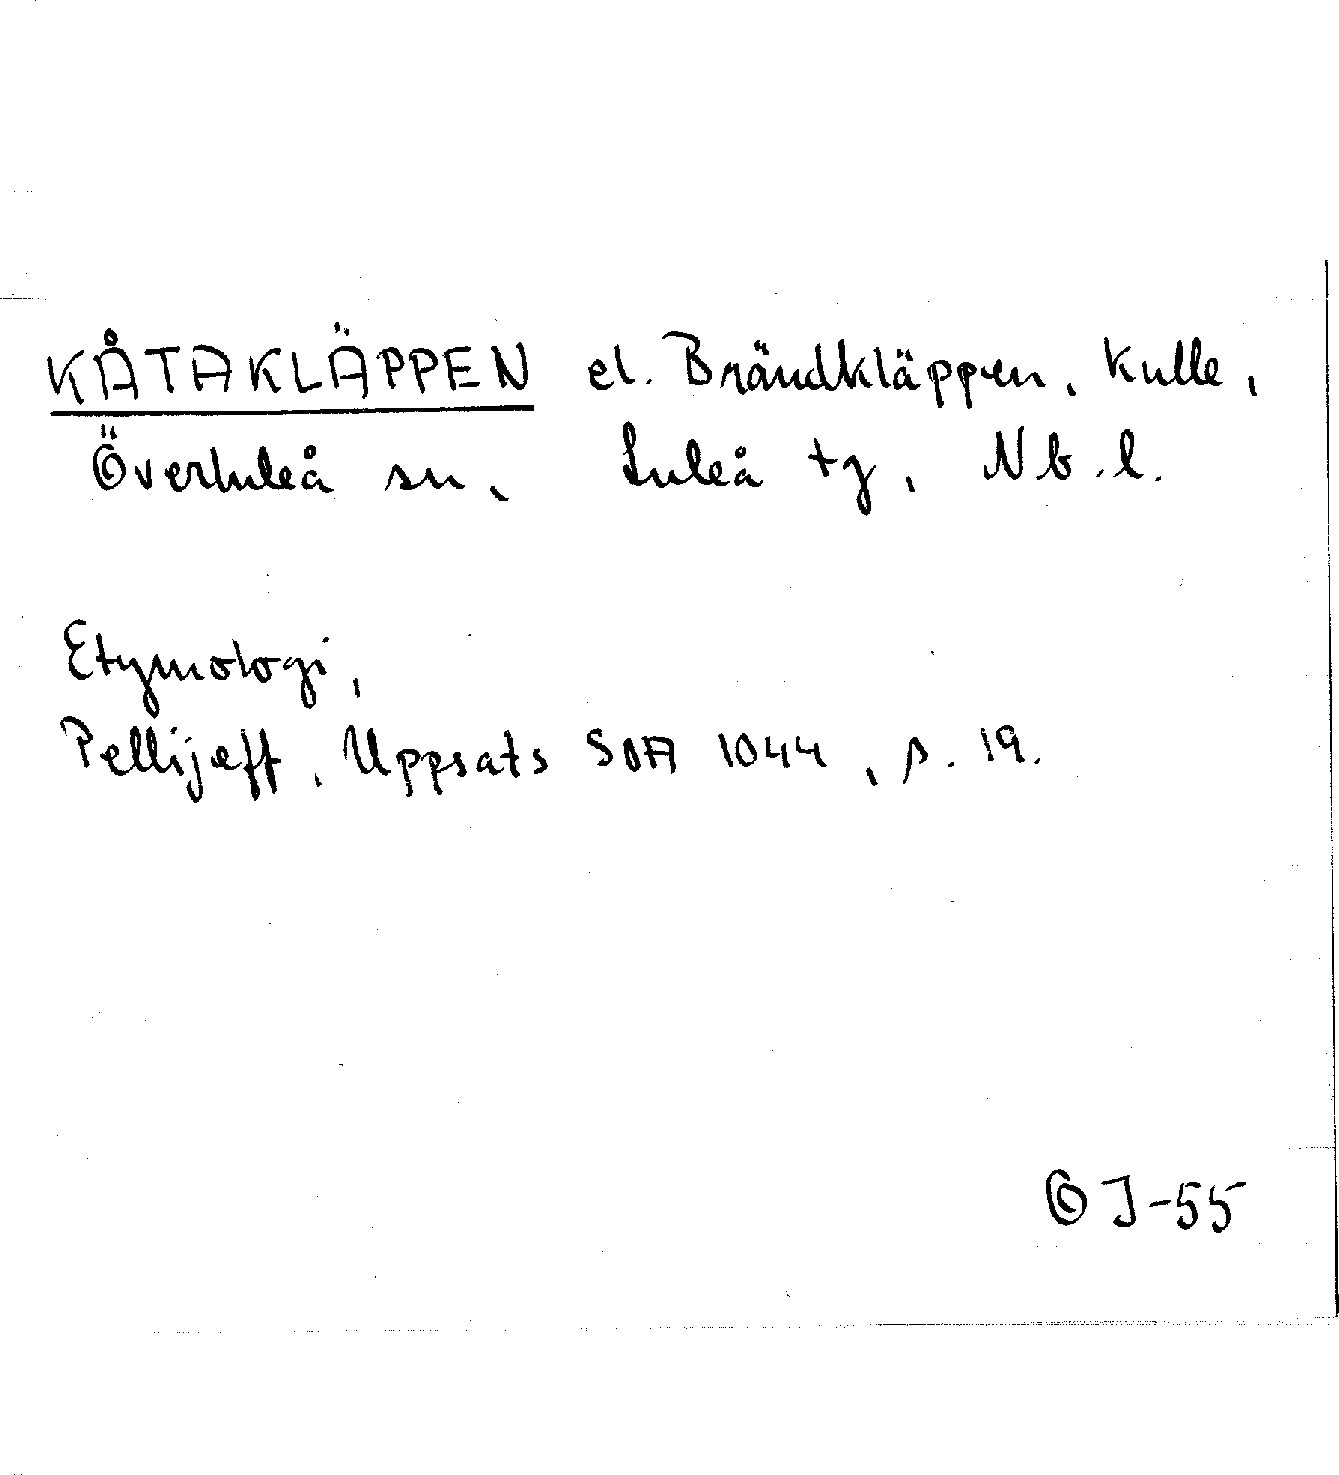 KÅTAKLÄPPEN el. Brändkläppen, kulle,
Överluleå sn, Luleå tg, Nb.l.
Etymologi,
Pellijeff, Uppsats SOA 1044, s. 19.
ÖJ-55